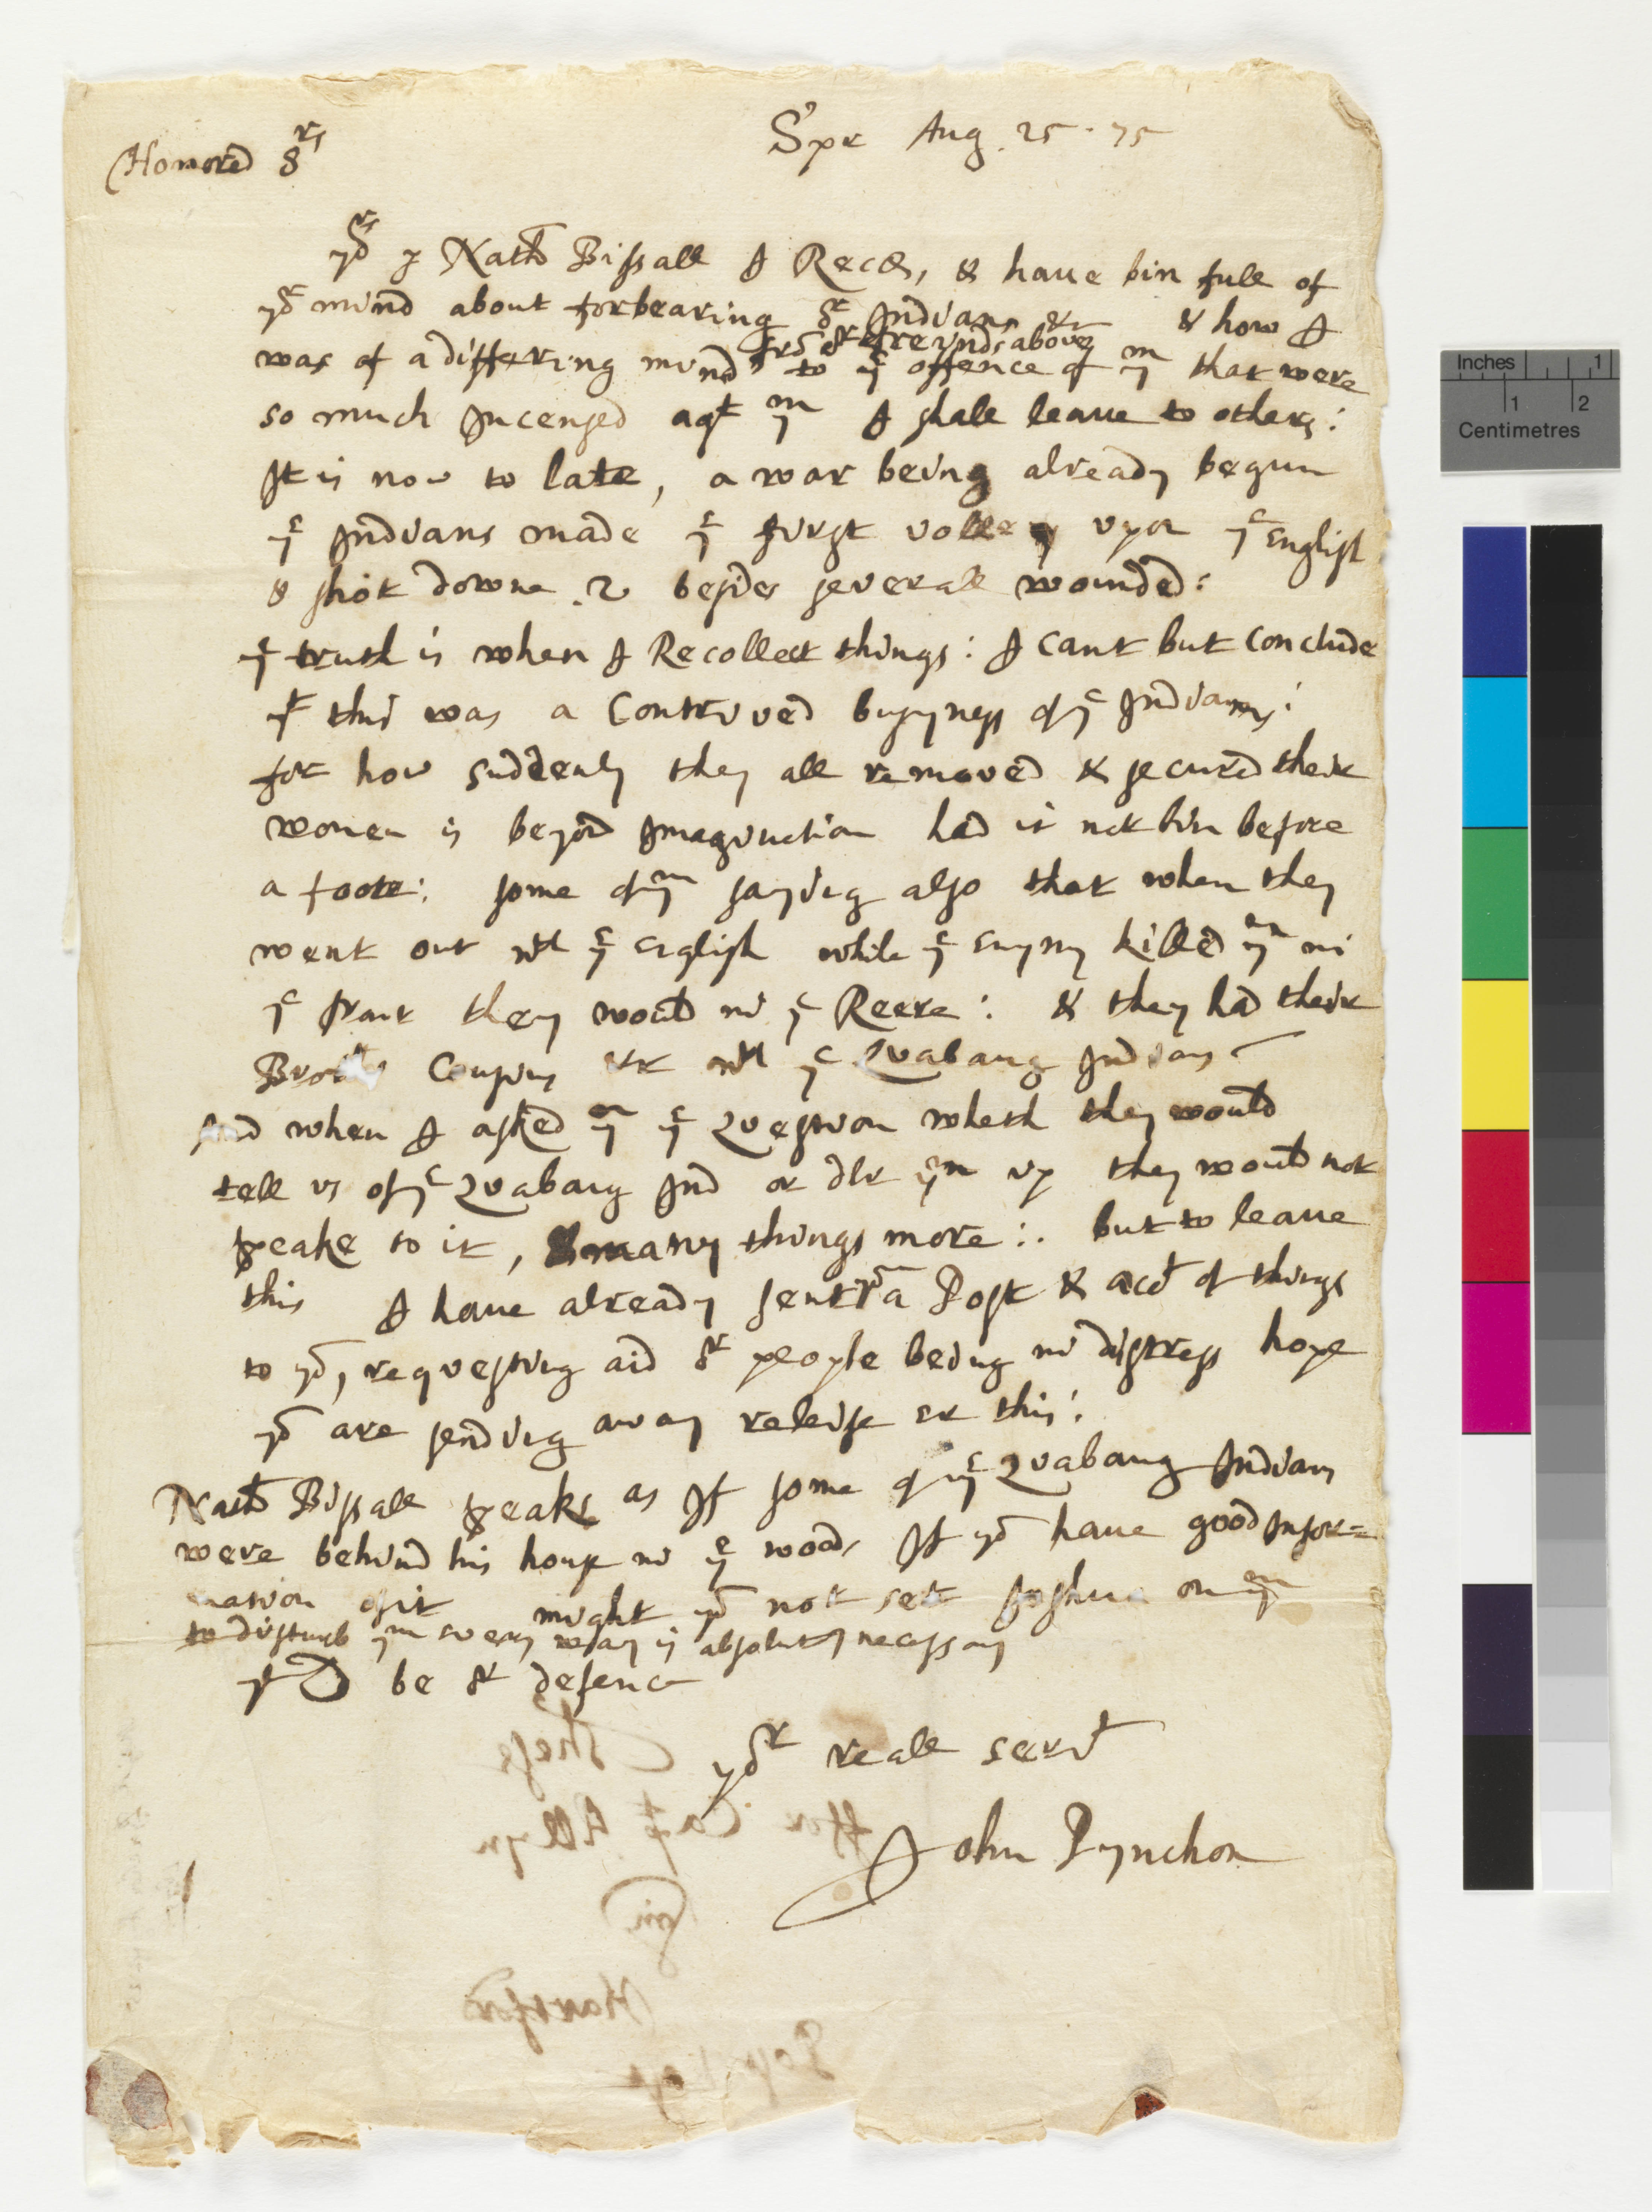 Spr Aug. 25. 75
Honored Srs
yors p Nath Bissall I Recd, & have bin full of
yor mind about forbearing or Indians &c & how I
was of a differing mind fro or freinds above to ye offence of ym that were
so much Incensed agt ym I shall leave to others:
It is now to late, a war being already begun
ye Indians made ye first volley upon ye English
& shot downe 2 besides severall wounded:
ye truth is when I Recollect things: I cant but conclude
yt this was a Contrived busyness of ye Indians:
for how suddenly they all removed & secured their
women is beyond Imagination had it not bin before
a foote: some of ym saying also that when they
went out wth ye English while ye enymy killed ym in
ye front they would in ye Reere: & they had their
Brothrs Cousins &c wth ye Quabaug Indians
And when I asked ym ye Question wheth they would
tell us of ye Quabaug Ind or dlr ym up they would not
speake to it, & many things more: but to leave
this I have already sent fro a Post & acct of things
to yo, requesting aid or people being in distress hope
yo are sending away releife er this:
Nath Bissall speaks as If some of ye Quabaug Indians
were behind his house in ye woods If yo have good Infor=
mation of it might yo not sett Joshua on ym
to disturb ym every way is absolutly necessary
yt D be or defence
yor reall servt
John Pynchon
These
ffor Capt Allyn
Hartford